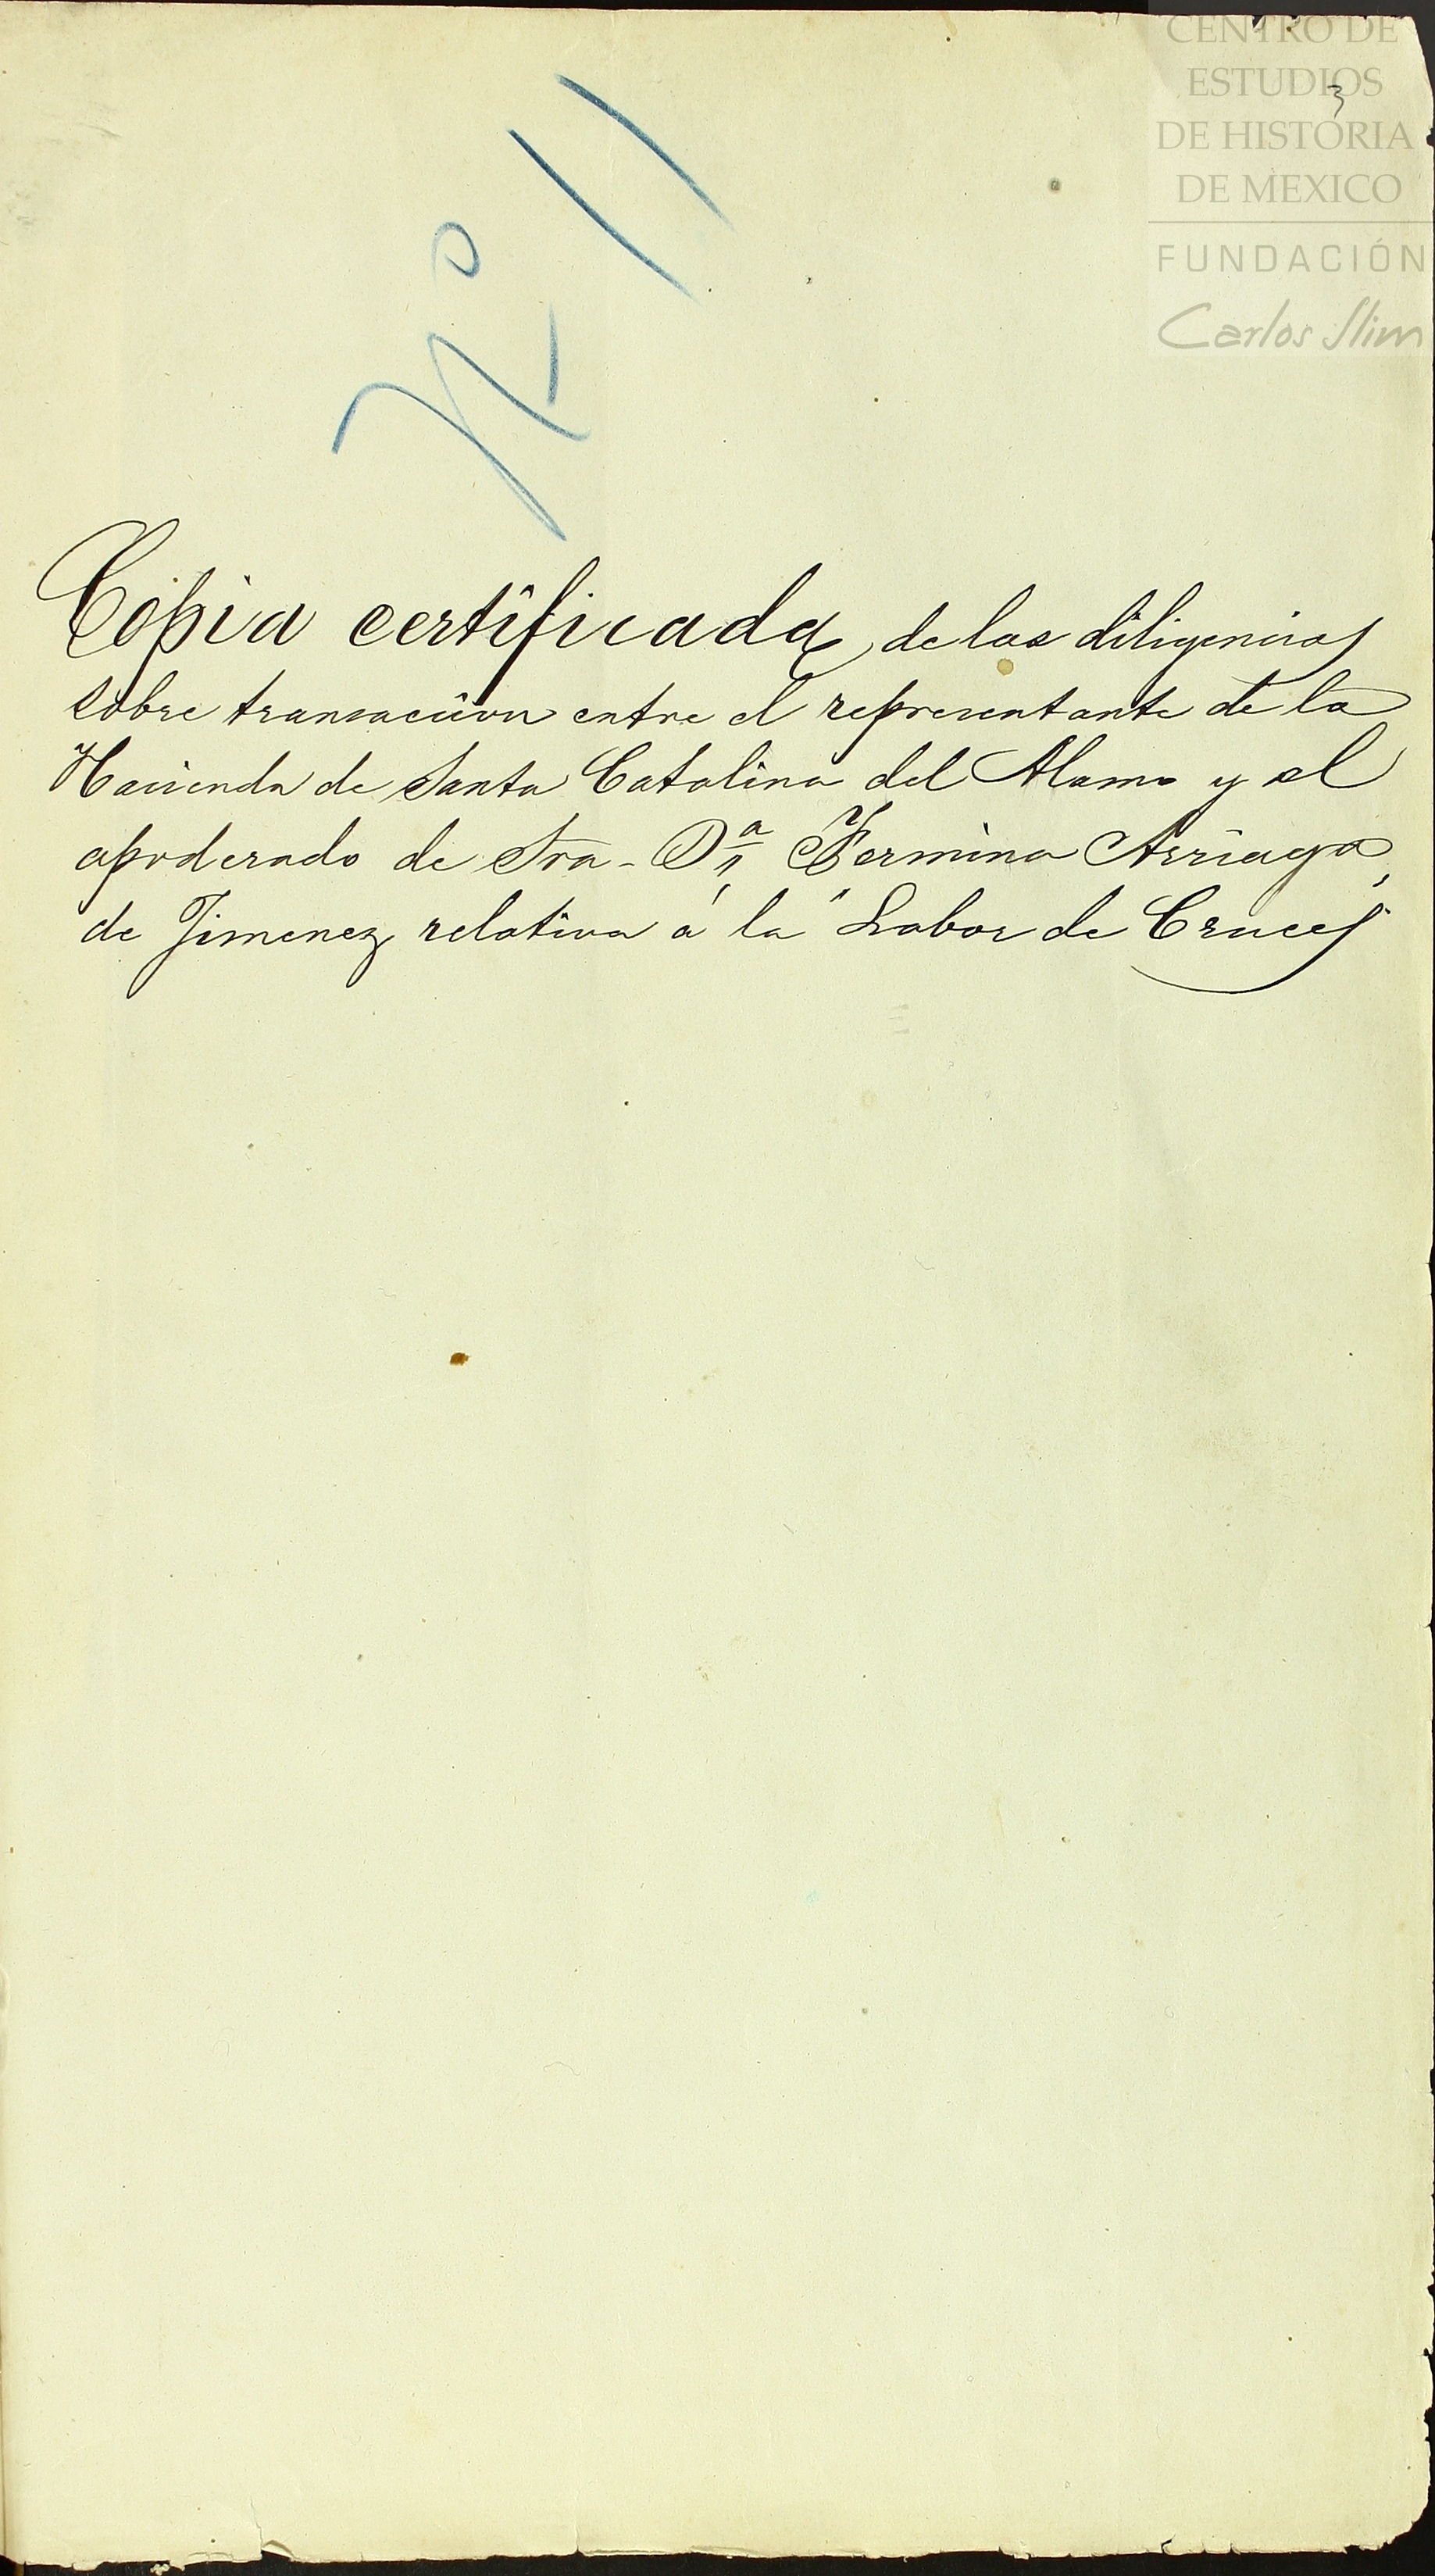 CENTRO DE
ESTUDIOS
DE HISTORIA
DE MEXICO
FUNDACIÓN
Carlos Slim
3
Nº 11
Copia certificada de las diligencias
sobre transacción entre el representante de la
Hacienda de Santa Catalina del Alamo y el
apoderado de Sra. Dª Fermina Arriaga
de Jimenez, relativa á la "Labor de Cruces"